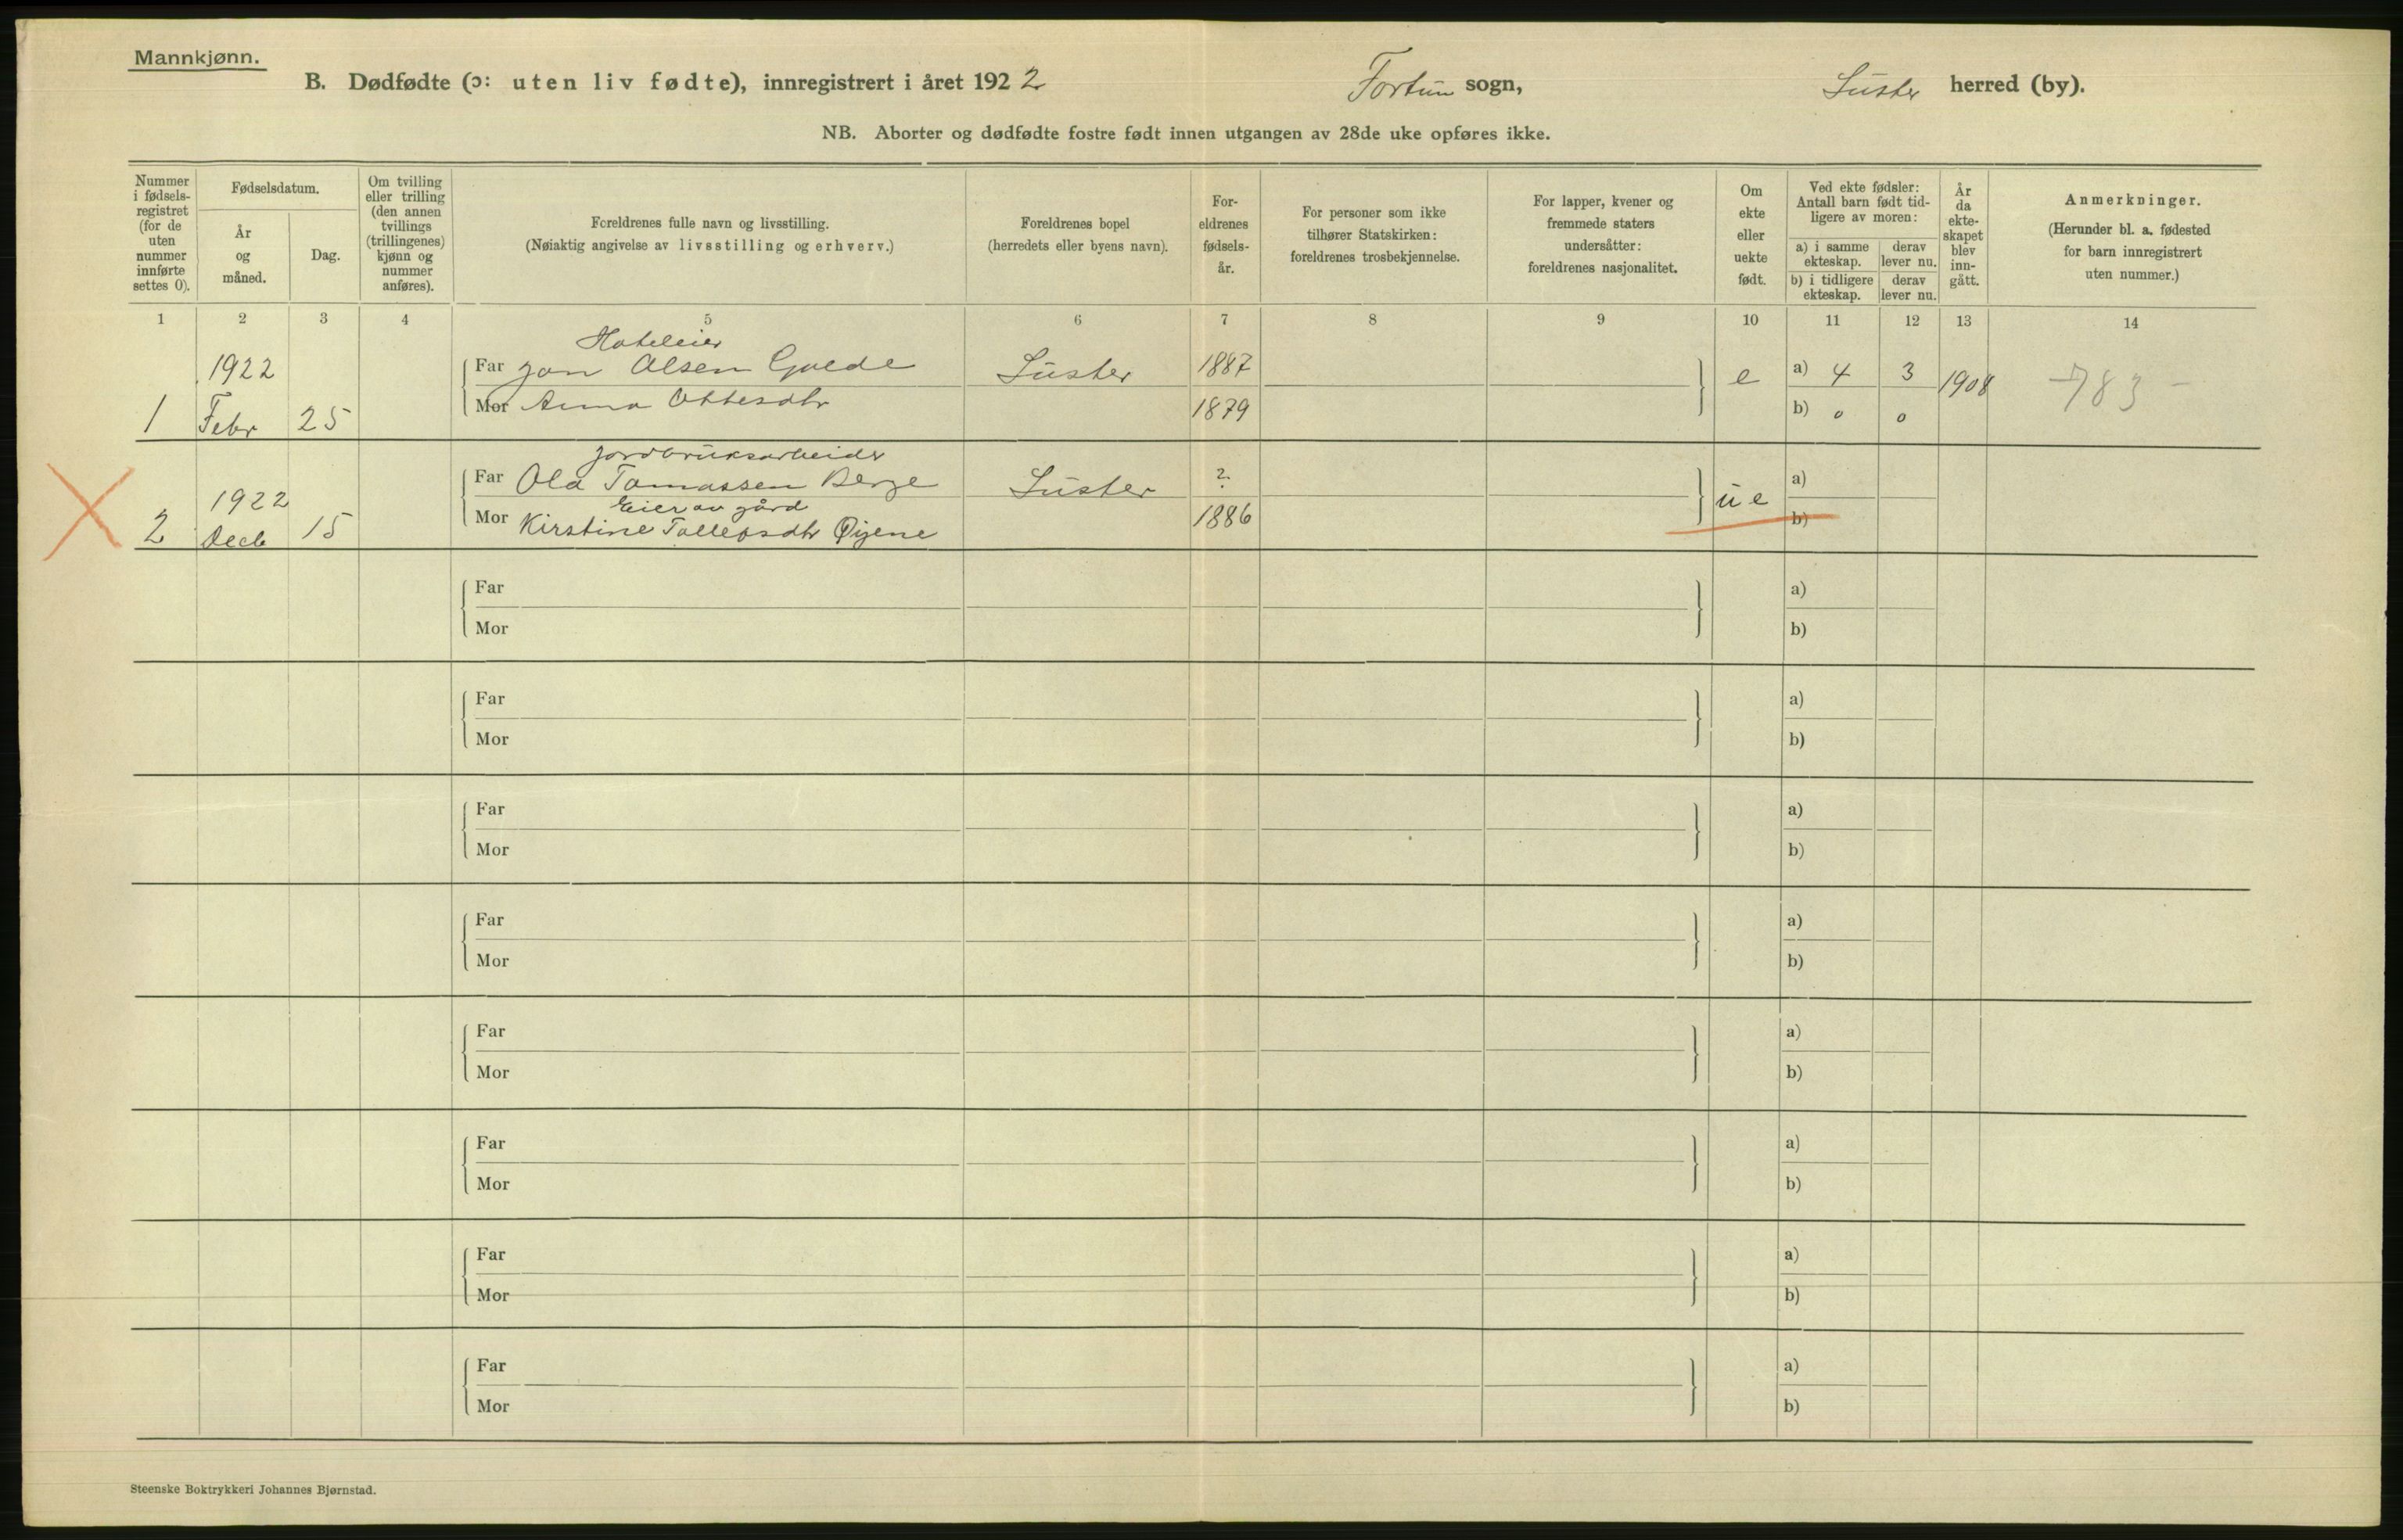 Mannkjønn.
B. Dødfødte (ɔ: uten liv fødte), innregistrert i året 1922 Fortun sogn, Luster herred (by).
NB. Aborter og dødfødte fostre født innen utgangen av 28de uke opføres ikke.
Nummer i fødsels-registret (for de uten nummer innførte settes 0).
Fødselsdatum.
År og måned.
Dag.
Om tvilling eller trilling (den annen tvillings (trillingenes) kjønn og nummer anføres).
Foreldrenes fulle navn og livsstilling.
(Nøiaktig angivelse av livsstilling og erhverv.)
Foreldrenes bopel
(herredets eller byens navn).
For-eldrenes fødsels-år.
For personer som ikke tilhører Statskirken: foreldrenes trosbekjennelse.
For lapper, kvener og fremmede staters undersåtter: foreldrenes nasjonalitet.
Om ekte eller uekte født.
Ved ekte fødsler: Antall barn født tid-ligere av moren:
a) i samme ekteskap.
derav lever nu.
b) i tidligere ekteskap.
derav lever nu.
År da ekte-skapet blev inn-gått.
Anmerkninger.
(Herunder bl. a. fødested for barn innregistrert uten nummer.)
1 2 3 4 5 6 7 8 9 10 11 12 13 14
Hoteleier
1922 Far Jon Olsen Luster 1887 e a) 4 3 1908 783
1 Febr 25 Mor Anna Ottesdtr 1879 b) 0 0
Jordbruksarbeider
Far Ola Tomassen Berge Luster ? ue a)
1922 Eier av gård
2 Decb 15 Mor Kirstine Tollefsdtr Øyene 1886 b)
Far a)
Mor b)
Far a)
Mor b)
Far a)
Mor b)
Far a)
Mor b)
Far a)
Mor b)
Far a)
Mor b)
Far a)
Mor b)
Far a)
Mor b)
Steenske Boktrykkeri Johannes Bjørnstad.